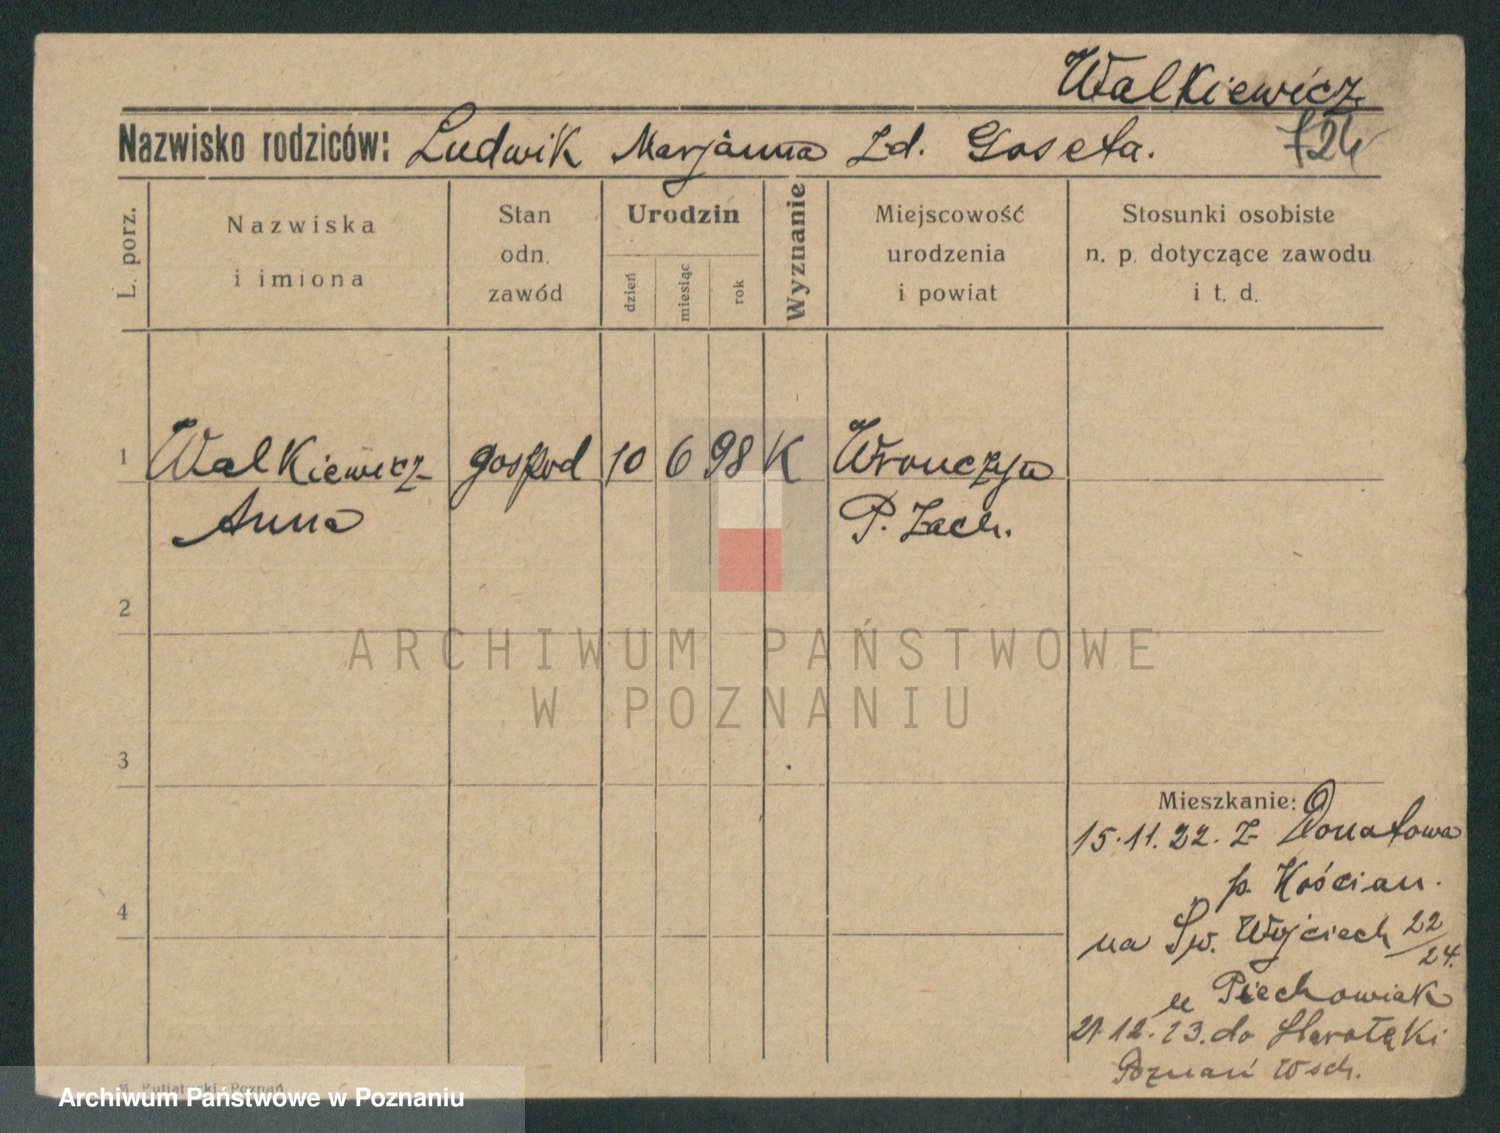 Walkiewicz
Nazwisko rodziców: Ludwik Marjanna Zd. Goseta.
724
L. porz.
Nazwiska
i imiona
Stan
odn.
zawód
Urodzin
dzień
miesiąc
rok
Wyznanie
Miejscowość
urodzenia
i powiat
Stosunki osobiste
n. p. dotyczące zawodu
i t. d.
1 Walkiewicz gospod 10 6 98 K Wronczyn
Anna P. Zach.
2
ARCHIWUM PAŃSTWOWE
W POZNANIU
3
Mieszkanie:
15.11.22. z Donatowa
p. Kościan.
4
na Św. Wojciech 22/24.
u Piechowiak
21.12.23. do Starołęki
Poznań Wsch.
Archiwum Państwowe w Poznaniu